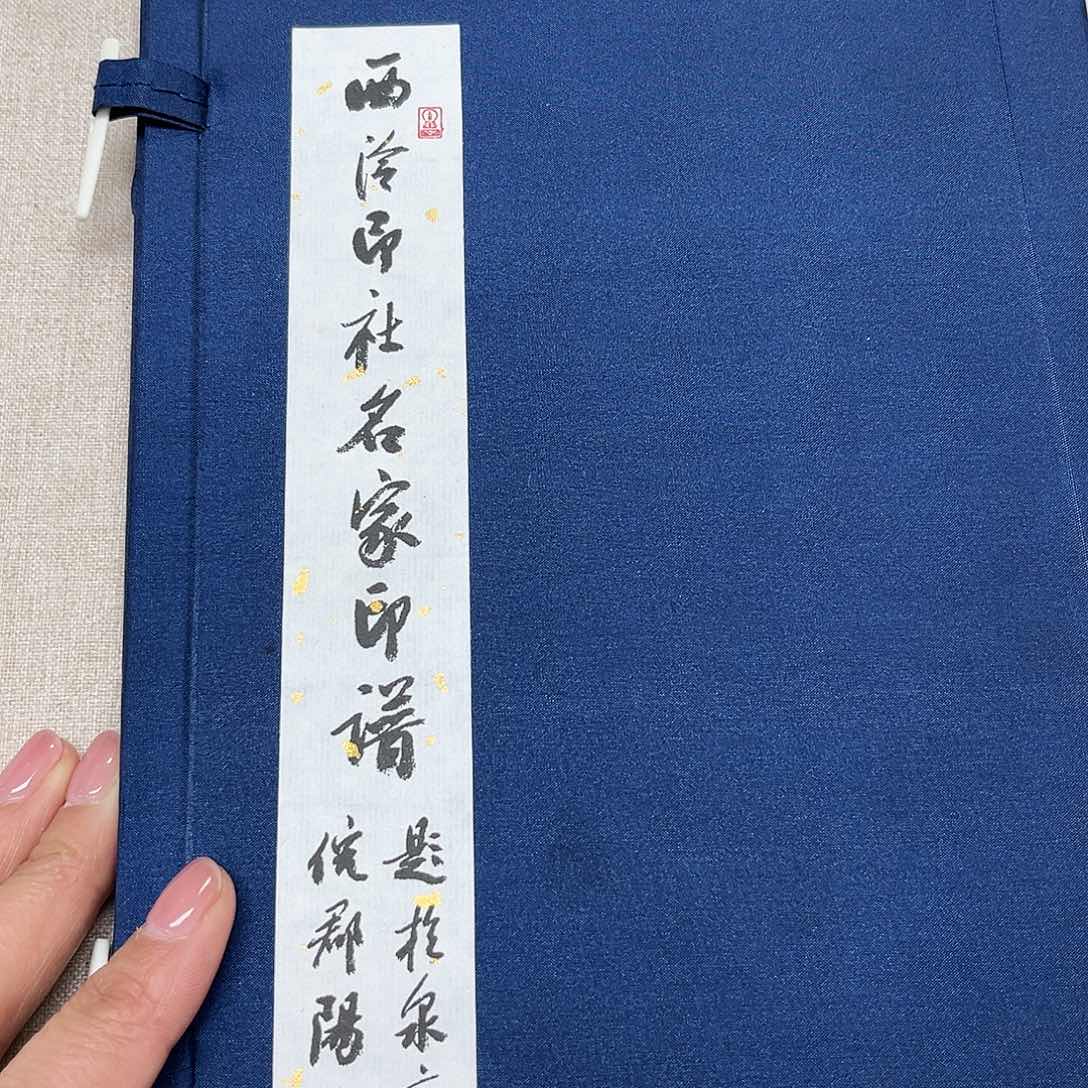 西泠印社名家印譜
題於泉
倪郡陽